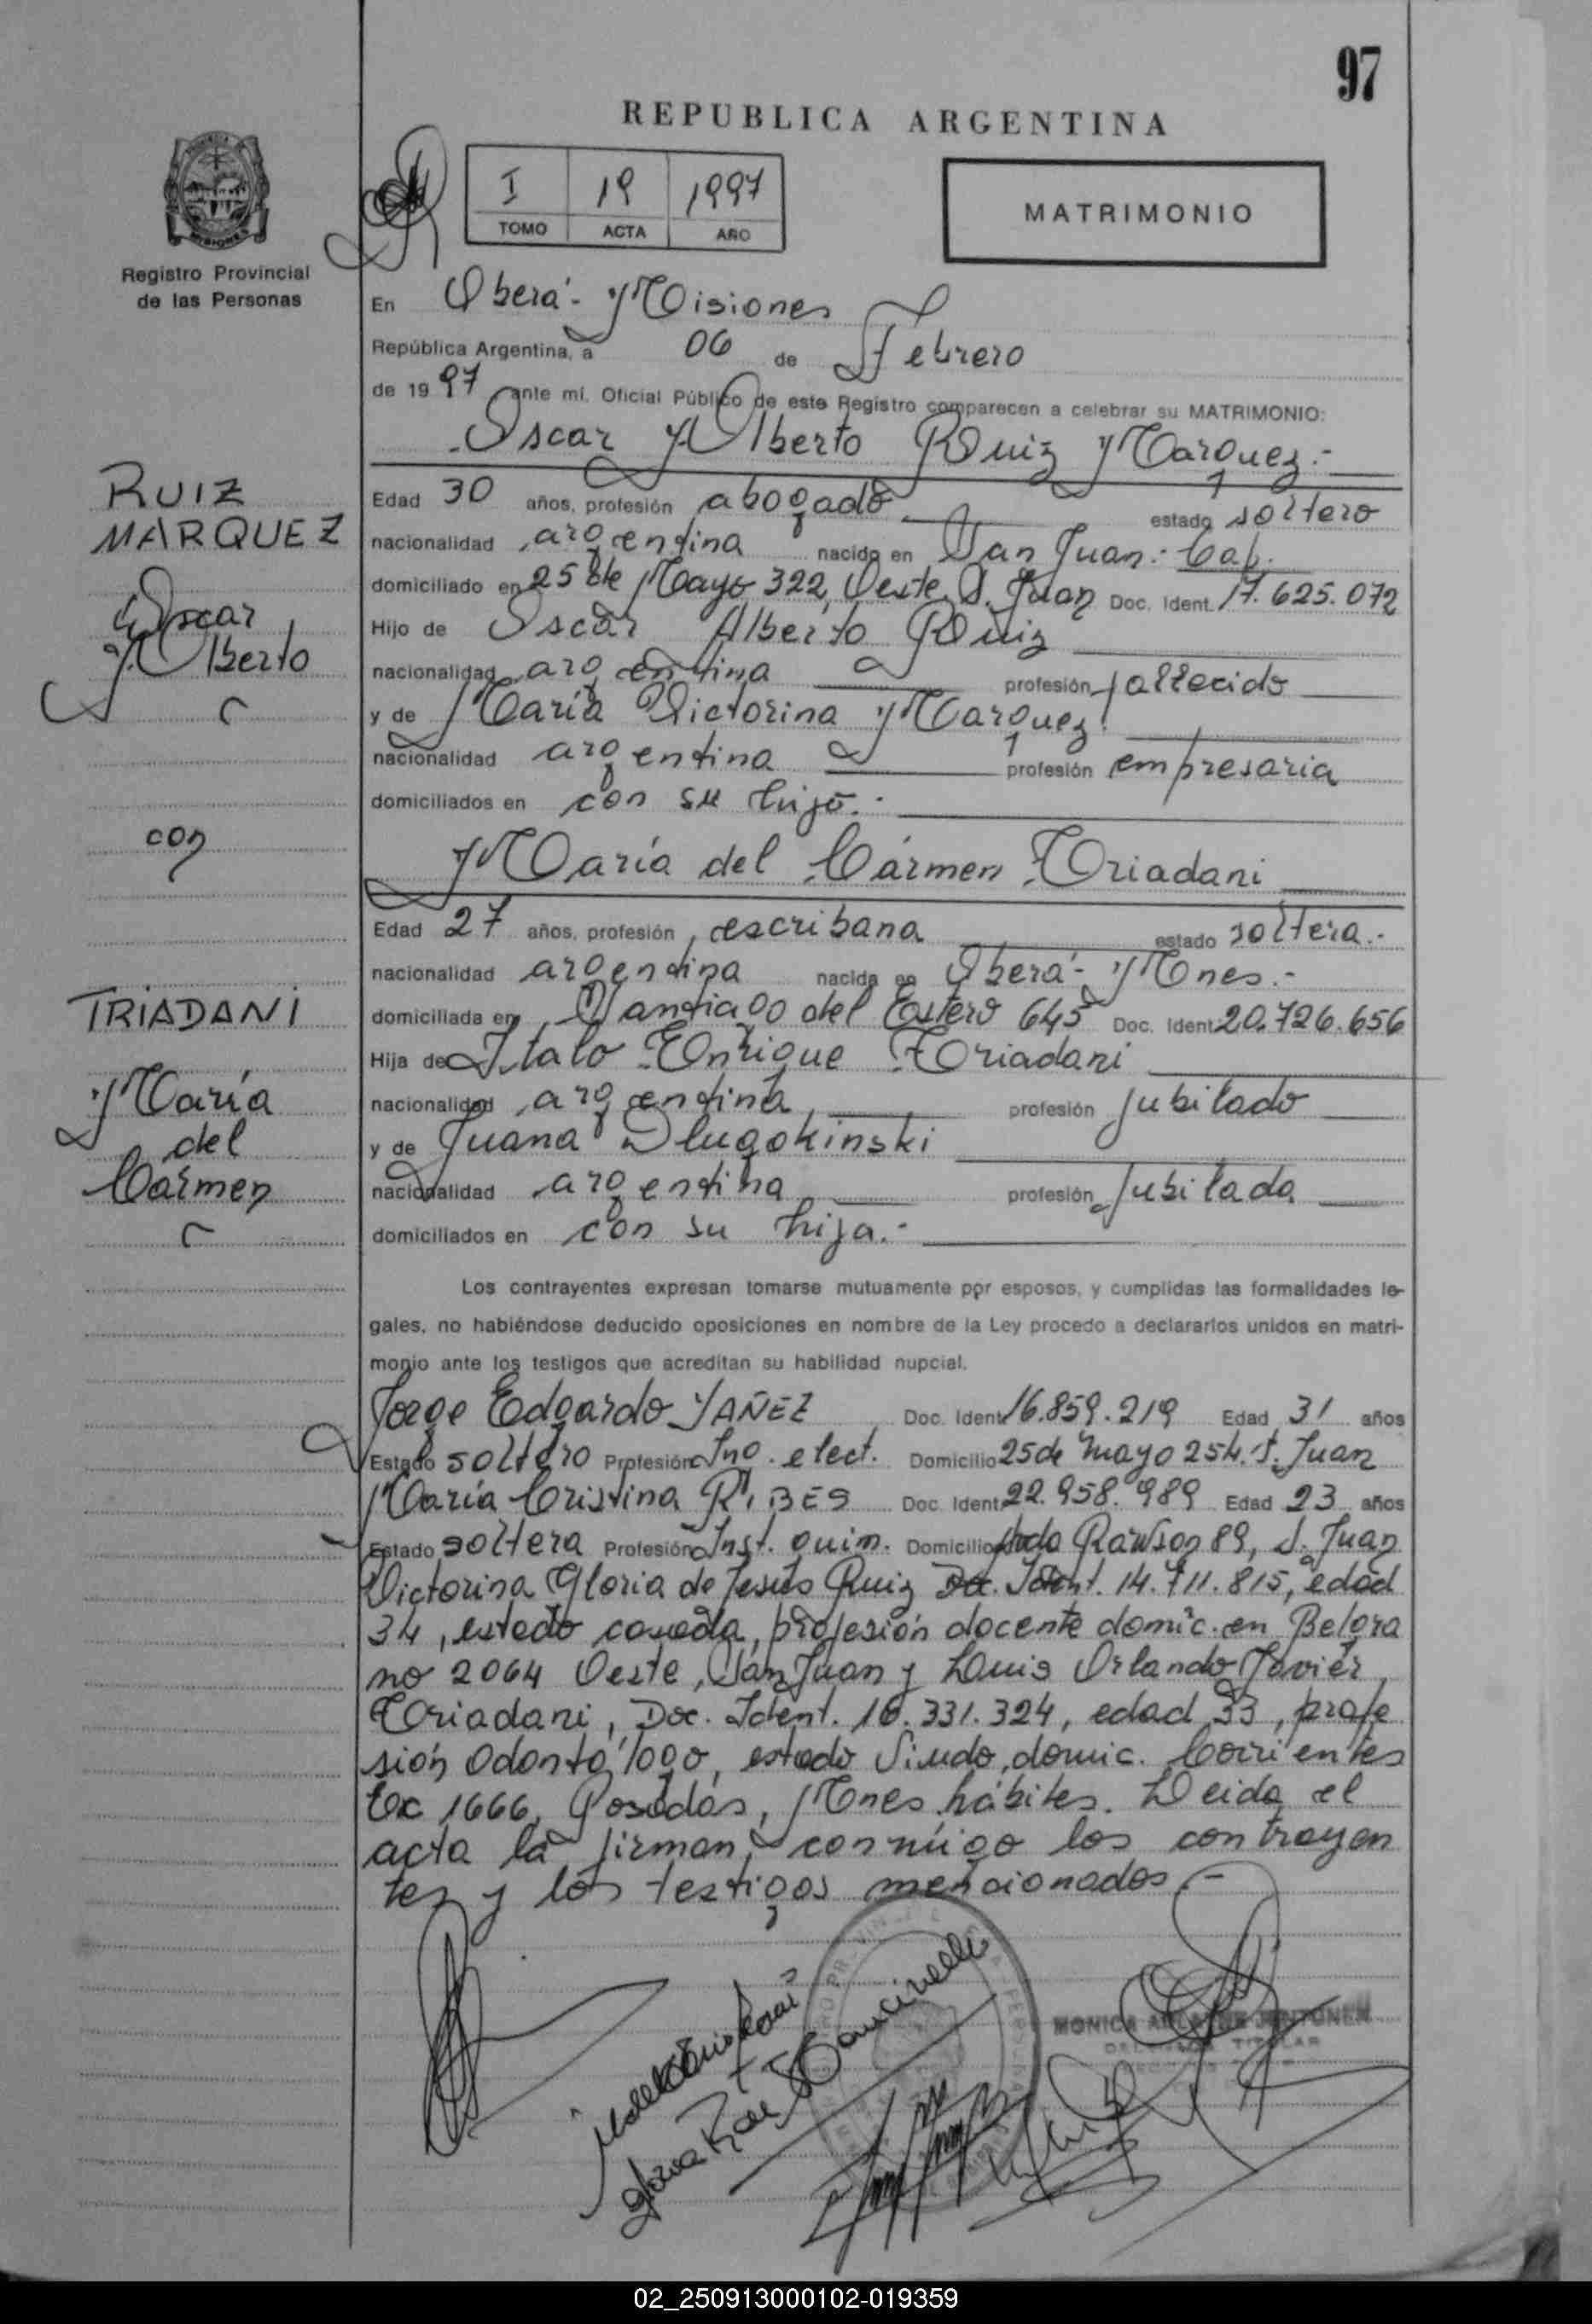 97
REPUBLICA ARGENTINA
I 19 1997
TOMO ACTA AÑO
MATRIMONIO
MISIONES
Registro Provincial
de las Personas
En Oberá - Misiones
República Argentina, a 06 de Febrero
de 1997 ante mí, Oficial Público de este Registro comparecen a celebrar su MATRIMONIO:
Oscar Alberto Ruiz Marquez.-
RUIZ
MARQUEZ
Oscar
Alberto
Edad 30 años, profesión abogado estado soltero
nacionalidad argentina nacido en San Juan.- Cap.
domiciliado en 25 de Mayo 322, Oeste, S. Juan Doc. Ident. 17.625.072
Hijo de Oscar Alberto Ruiz
nacionalidad argentina profesión fallecido
y de María Victorina Marquez.
nacionalidad argentina profesión empresaria
domiciliados en con su hijo.-
con
María del Cármen Triadani
Edad 27 años, profesión escribana estado soltera.-
nacionalidad argentina nacida en Oberá - Mnes.-
domiciliada en Santiago del Estero 645 Doc. Ident. 20.726.656
Hija de Italo Enrique Triadani
nacionalidad argentina profesión jubilado
y de Juana Dlugokinski
nacionalidad argentina profesión jubilada
domiciliados en con su hija.-
TRIADANI
María
del
Cármen
Los contrayentes expresan tomarse mutuamente por esposos, y cumplidas las formalidades le-
gales, no habiéndose deducido oposiciones en nombre de la Ley procedo a declararlos unidos en matri-
monio ante los testigos que acreditan su habilidad nupcial.
Jorge Edgardo YAÑEZ Doc. Ident. 16.859.219 Edad 31 años
Estado soltero Profesión Ing. elect. Domicilio 25 de mayo 254. S. Juan
María Cristina RIBES Doc. Ident. 22.958.989 Edad 23 años
Estado soltera Profesión Inst. quim. Domicilio Rawson 89, S. Juan
Victorina Gloria de Jesús Ruiz Doc. Ident. 14.711.815, edad
34, estado casada, profesión docente domic. en Belgra
no 2064 Oeste, San Juan y Luis Orlando Javier
Triadani, Doc. Ident. 16.331.324, edad 33, profe
sión odontólogo, estado viudo, domic. Corrientes
1666, Posadas, Mnes hábiles. Leida el
acta la firman conmigo los contrayen
tes y los testigos mencionados.-
MONICA
TITULAR
02_250913000102-019359